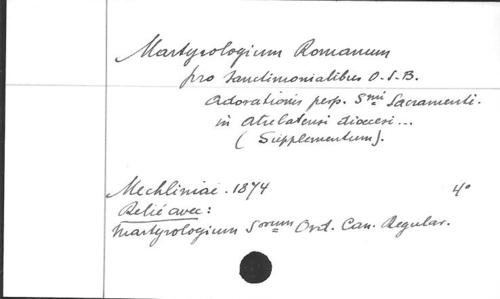 Martyrologium Romanum
pro Sanctimonialibus O.S.B.
Adorationis perp. Smi Sacramenti.
in Atrebatensi dioecesi...
(Supplementum).
Mechliniae. 1874 4°
Relié avec:
Martyrologium Sorum Ord. Can. Regular.